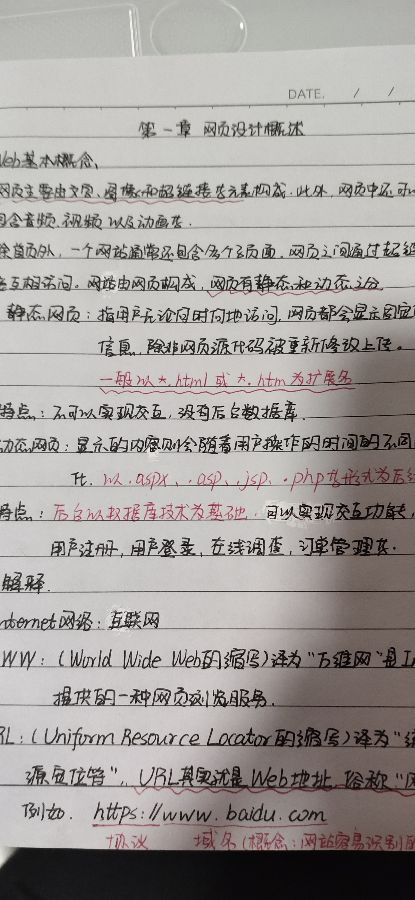 DATE. / /
第一章 网页设计概述
Web基本概念、
网页主要由文字、图像和超链接等元素构成.此外,网页中还可以
包含音频、视频以及动画等.
除首页外,一个网站通常还包含多个子页面,网页之间通过超链
互相访问。网站由网页构成,网页有静态和动态之分
静态网页:指用户无论何时何地访问,网页都会显示固定
信息,除非网页源代码被重新修改上传。
一般以*.html或*.htm为扩展名
特点:不可以实现交互,没有后台数据库.
动态网页:显示的内容则会随着用户操作的时间的不同
化.以.aspx、.asp、.jsp、.php等形式为后
特点:后台以数据库技术为基础.可以实现交互功能,
用户注册,用户登录,在线调查,订单管理等.
解释.
nternet网络:互联网
WW:(World Wide Web的缩写)译为"万维网"是I
提供的一种网页浏览服务.
RL:(Uniform Resource Locator的缩写)译为"
源定位符",URL其实就是Web地址,俗称"网
例如.https://www.baidu.com
协议 域名(概念:网站容易识别的